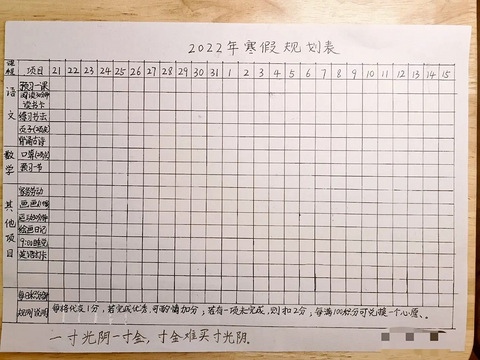 2022年寒假规划表
课程 项目 21 22 23 24 25 26 27 28 29 30 31 1 2 3 4 5 6 7 8 9 10 11 12 13 14 15
语文 预习一课
阅读30分钟
读书卡
练习书法
背诵古诗
数学 口算(2页)
预习一节
其他项目 家务劳动
画画1幅
绘画日记
9:00睡觉
英语打卡
每日积分
规则说明 每项优良1分,若完成优秀,可酌情加分;若有一项未完成,则扣2分;每满100积分可兑换一个心愿。
一寸光阴一寸金,寸金难买寸光阴。